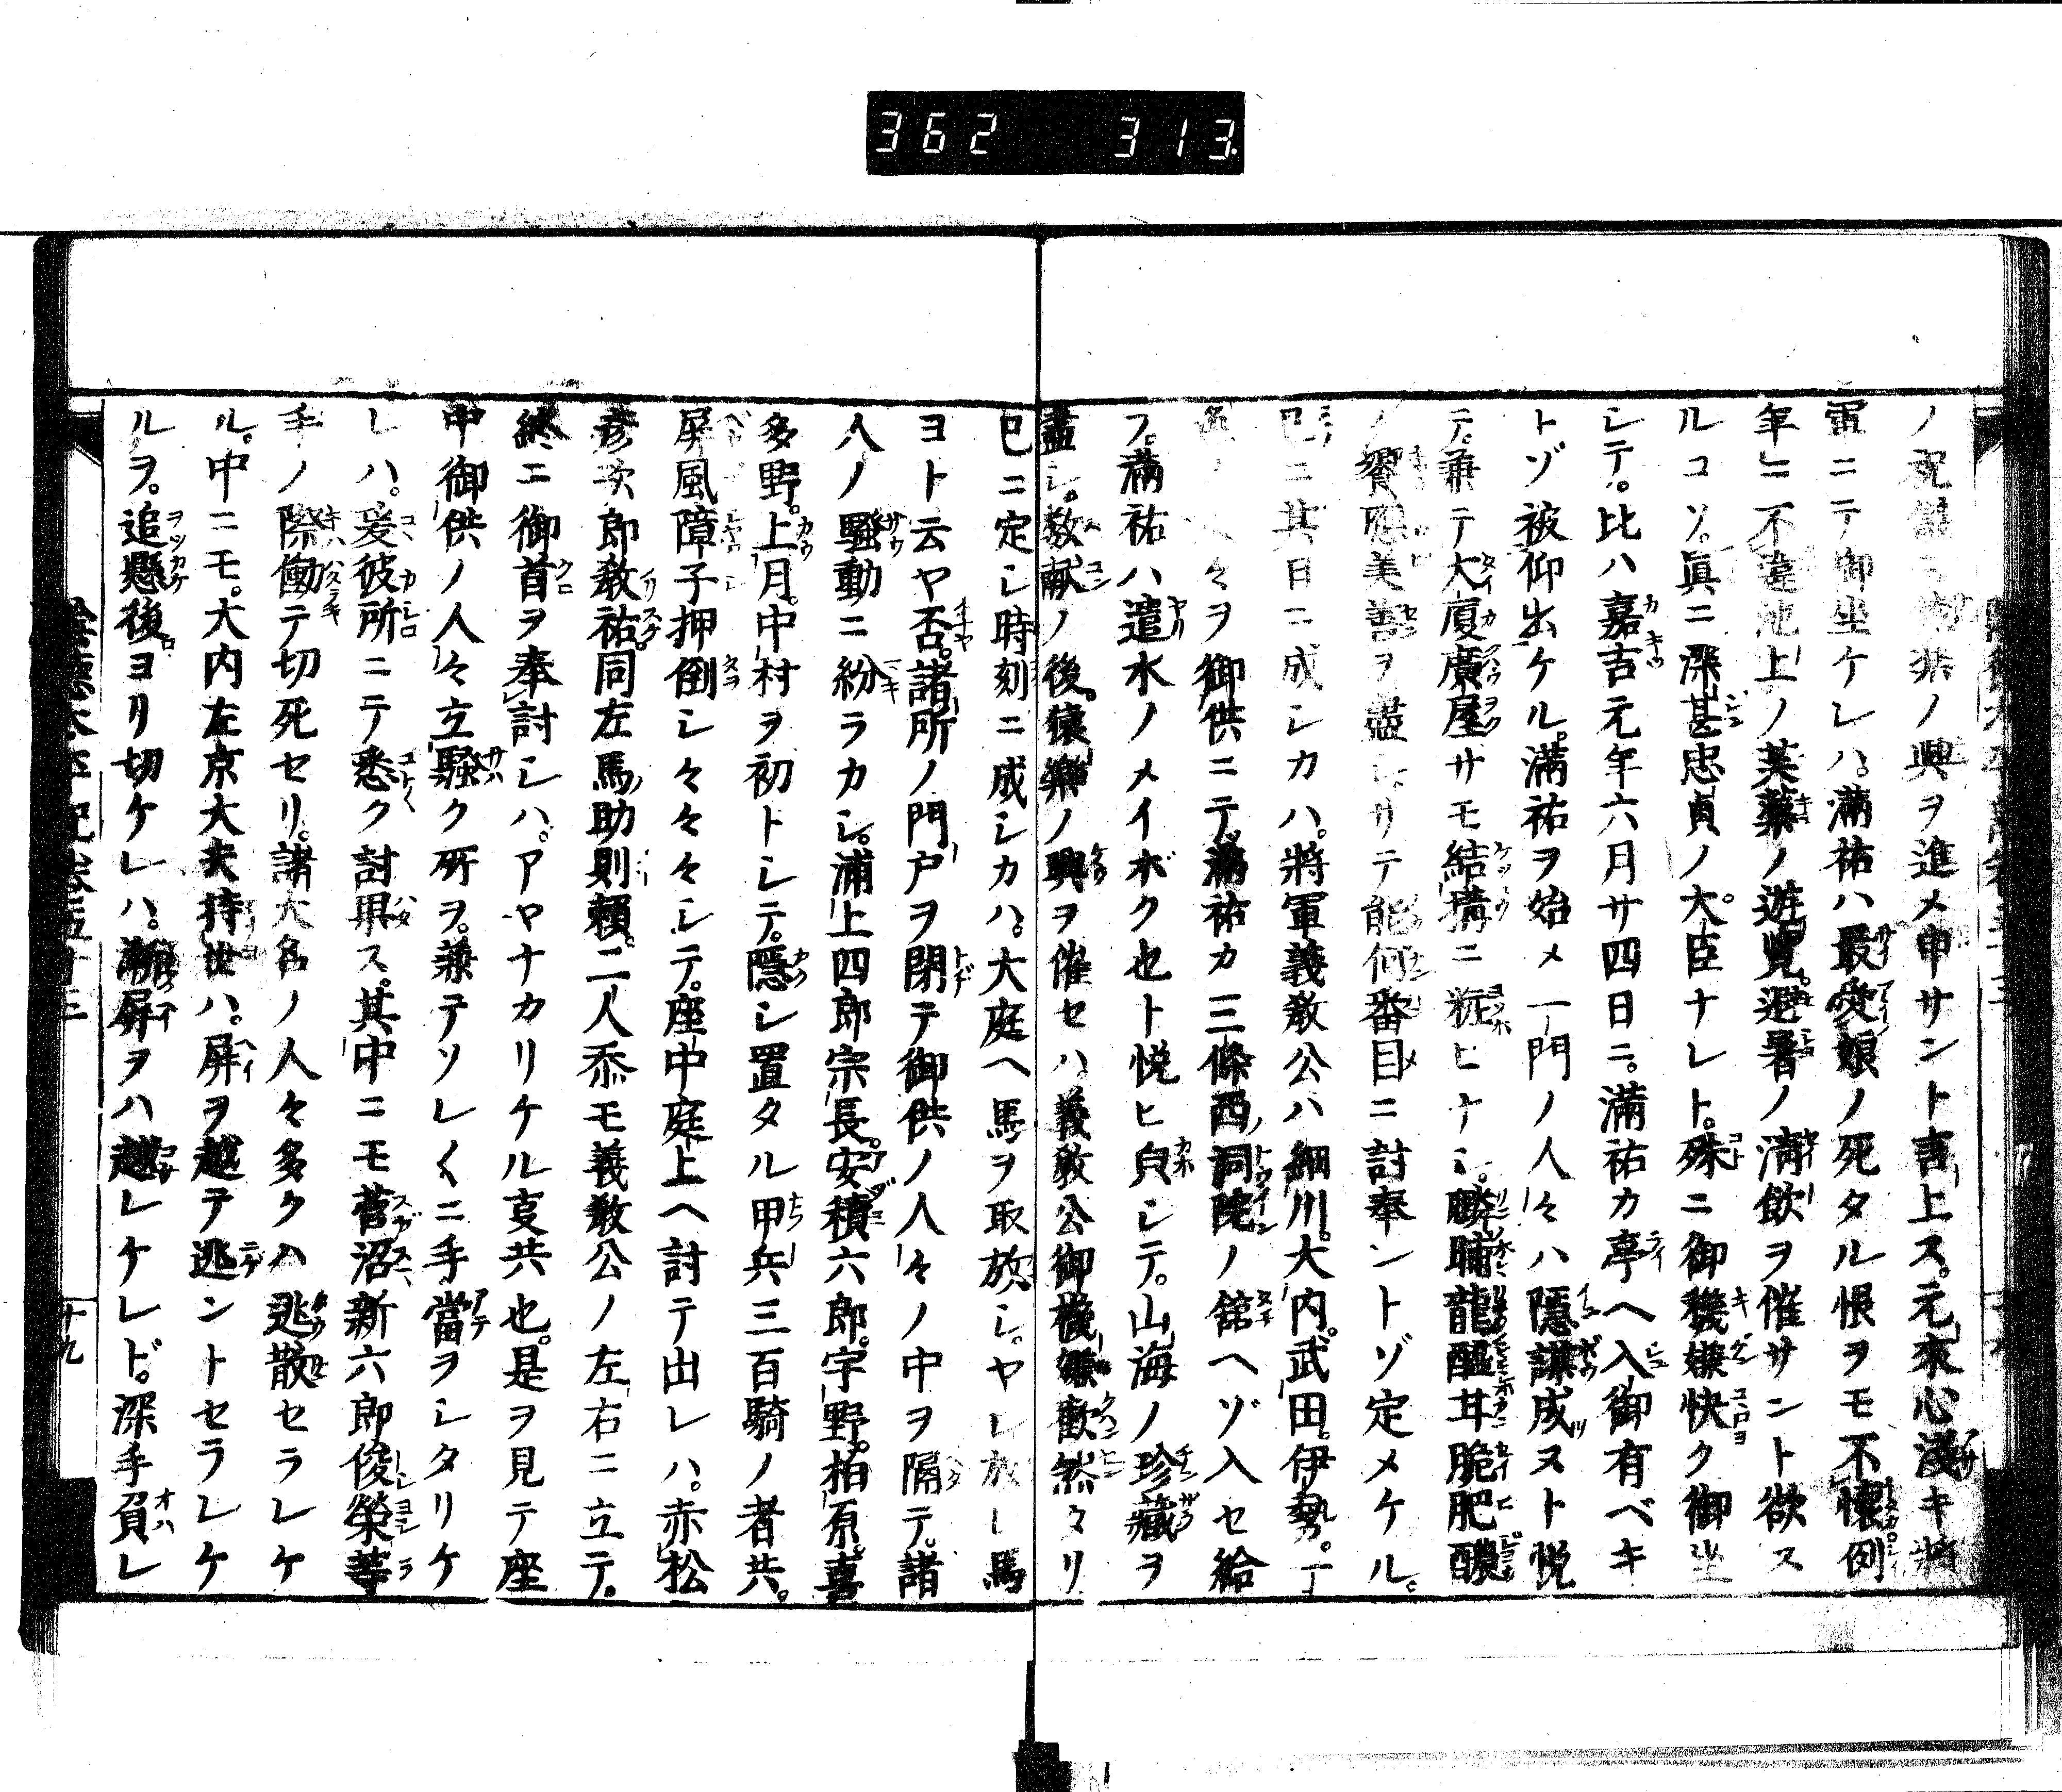 362 313.
ノ祝儀ニ 楽ノ興ヲ進メ申サント言上ス。元來心淺キ將
軍ニテ御坐ケレハ。満祐ハ最愛娘ノ死タル恨ヲモ不懐倒
年ニ不違池上ノ芙蕖ノ遊覽。避暑ノ清飲ヲ催サント欲ス
ルコソ。眞ニ深甚忠貞ノ大臣ナレト。殊ニ御機嫌快ク御坐
シテ。比ハ嘉吉元年六月廿四日ニ。満祐カ亭へ入御有ベキ
トゾ被仰出ケル。満祐ヲ始メ一門ノ人々ハ隱謀成ヌト悦
テ。兼テ大廈廣屋サモ結搆ニ粧ヒナシ。麟脯龍醢茸脆肥醲
ノ饗應美善ヲ盡シサリテ能何番目ニ討奉ントゾ定メケル。
巳ニ其日ニ成シカハ。將軍義教公ハ細川。大内。武田。伊勢。
ノ人々ヲ御供ニテ。満祐カ三條西洞院ノ舘へゾ入セ給
フ。満祐ハ遣水ノメイボク也ト悦ヒ皃シテ。山海ノ珍藏ヲ
盡シ。数献ノ後。猿樂ノ興ヲ催セハ。義教公御機嫌歡然タリ
巳ニ定シ時刻ニ成シカハ。大庭へ馬ヲ取放シ。ヤレ放レ馬
ヨト云ヤ否。諸所ノ門戸ヲ閉テ御供ノ人々ノ中ヲ隔テ。諸
人ノ騒動ニ紛ラカシ。浦上四郎宗長。安積六郎。宇野。柏原。喜
多野。上月。中村ヲ初トシテ。隱シ置タル甲兵三百騎ノ者共。
屏風障子押倒シ々々々シテ。座中庭上へ討テ出レハ。赤松
彦次郎教祐。同左馬助則頼。二人忝モ義教公ノ左右ニ立テ。
終ニ御首ヲ奉討シハ。アヤナカリケル叓共也。是ヲ見テ座
中御供ノ人々立騒ク所ヲ。兼テソレ〱ニ手當ヲシタリケ
レハ。爰彼所ニテ悉ク討果ス。其中ニモ菅沼新六郎俊榮等
手ノ際働テ切死セリ。諸大名ノ人々多クハ逃散セラレケ
ル。中ニモ。大内左京大夫持世ハ。屏ヲ越テ逃ントセラレケ
ルヲ。追懸後ヨリ切ケレハ。漸屏ヲハ越レケレド。深手負レ
陰德太平記卷五十三
十九